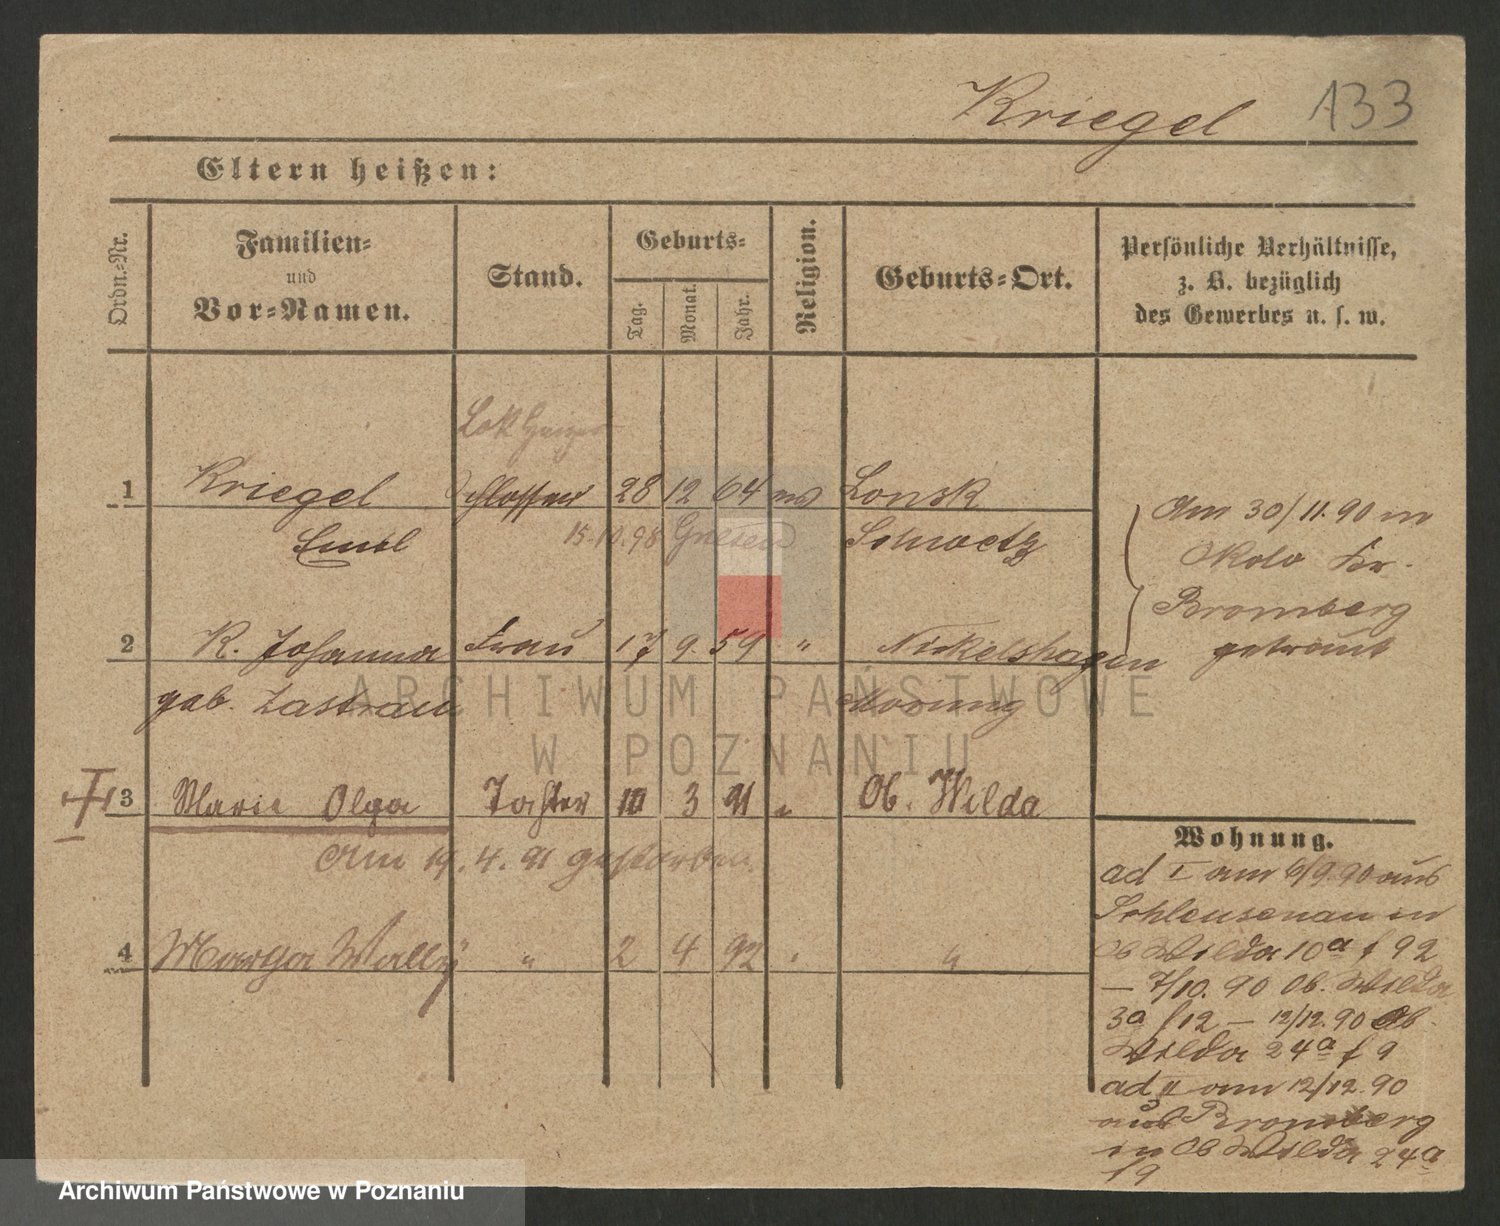 Kriegel 133
Eltern heißen:
Ordn.-Nr.
Familien-
und
Vor-Namen.
Stand.
Geburts-
Tag.
Monat.
Jahr.
Religion.
Geburts-Ort.
Persönliche Verhältnisse,
z. B. bezüglich
des Gewerbes u. s. w.
Lok Heizer
1 Kriegel Schlosser 28 12 64 ev Lonsk
Emil 15.10.98 Gnesen Schwetz
2 K. Johanna Frau 17 9. 59 " Nickelshagen
geb. Zastrau Morung
3 Marie Olga Tochter 10 3 91 " Ob. Wilda
Am 19. 4. 91 gestorben
4 Marga Wally " 2 4 92 " "
Am 30/11. 90 in
Okolo Kr.
Bromberg
getraut
Wohnung.
ad I am 6/9. 90 aus
Schleusenau in
Ob Wilda 10a f 92
— 7/10. 90 Ob. Wilda
3a f 12 — 12/12. 90 Ob.
Wilda 24a f 9
ad II am 12/12. 90
aus Bromberg
in Ob Wilda 24a
f 9
ARCHIWUM PAŃSTWOWE
W POZNANIU
Archiwum Państwowe w Poznaniu